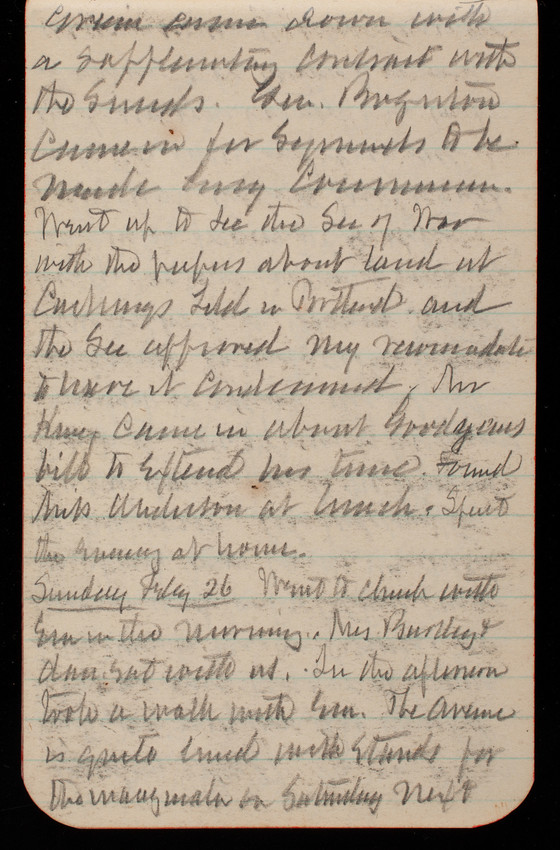 came down with
a supplementary contract with
the Gen. Boynton
Came in for to be
made
Went up to see the Sec of War
with the papers about land at
Cushings Isld in Portland and
the Sec approved my recomndatn
to have it condemned, Mr
King came in about Goodyears
bill to extend his time. Found
Miss Anderson at lunch. Spent
the evening at home.
Sunday Feby 26 Went to church with
Em in the morning. Mrs &
dau sat with us. In the afternoon
took a walk with Em. The Avenue
is quite lined with stands for
the inauguratn on Saturday next